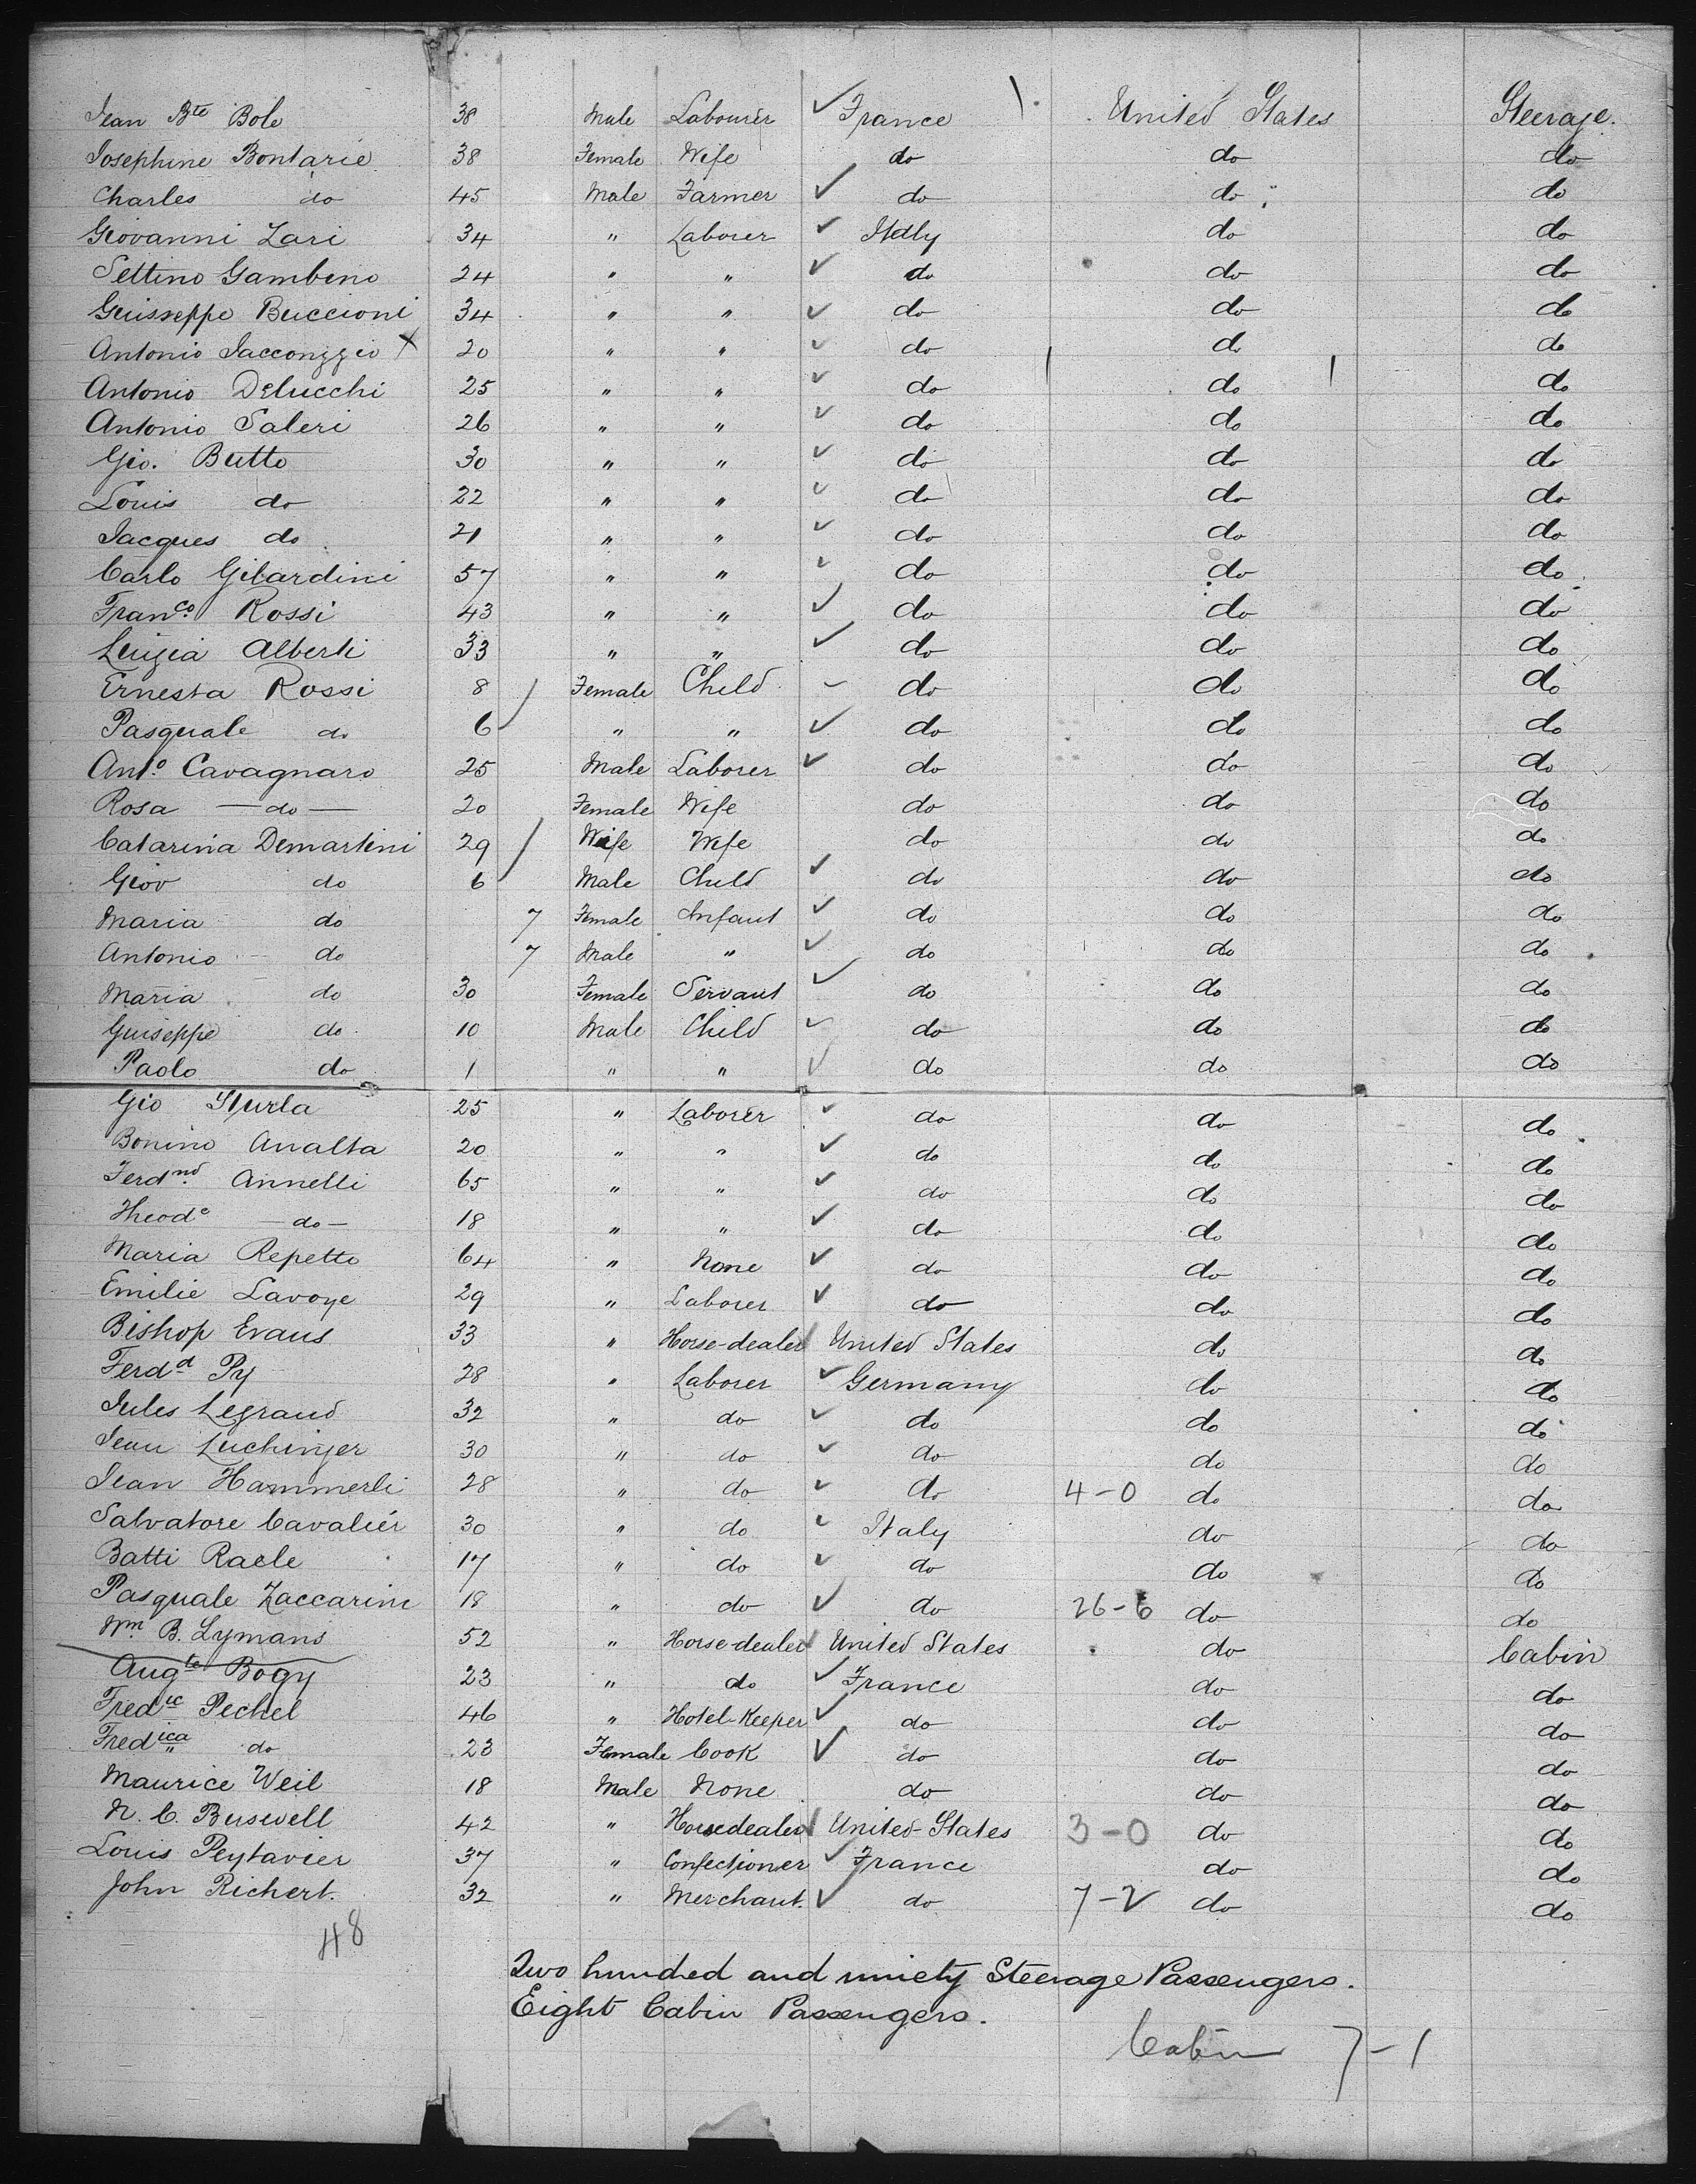 Jean Bte Bole 38 Male Labourer ✓ France United States Steerage.
Josephine Bontarie 38 Female Wife do do do
Charles do 45 Male Farmer ✓ do do do
Giovanni Lari 34 " Laborer ✓ Italy do do
Settino Gambino 24 " " ✓ do do do
Guisseppe Buccioni 34 " " ✓ do do do
Antonio X 20 " " ✓ do do do
Antonio Delucchi 25 " " ✓ do do do
Antonio Saleri 26 " " ✓ do do do
Gio. Butto 30 " " ✓ do do do
Louis do 22 " " ✓ do do do
Jacques do 21 " " ✓ do do do
Carlo Gilardini 57 " " ✓ do do do
Franco. Rossi 43 " " ✓ do do do
Luigia Alberti 33 " " ✓ do do do
Ernesta Rossi 8 Female Child do do do
Pasquale do 6 " " ✓ do do do
Anto. Cavagnaro 25 Male Laborer ✓ do do do
Rosa — do — 20 Female Wife do do do
Catarina Demartini 29 Wife Wife do do do
Giov do 6 Male Child ✓ do do do
Maria do 7 Female Infant ✓ do do do
Antonio do 7 Male " ✓ do do do
Maria do 30 Female Servant ✓ do do do
Guiseppe do 10 Male Child ✓ do do do
Paolo do 1 " " ✓ do do do
Gio Sturla 25 " Laborer ✓ do do do
Bonino 20 " " ✓ do do do
Ferdnd. Annelli 65 " " ✓ do do do
Theode — do — 18 " " ✓ do do do
Maria Repetto 64 " None ✓ do do do
Emilie Lavoye 29 " Laborer ✓ do do do
Bishop Evans 33 " Horse-dealer United States do do
Ferdd Py 28 " Laborer ✓ Germany do do
Jules Legrand 32 " do ✓ do do do
Jean Luchinger 30 " do ✓ do do do
Jean Hammerli 28 " do ✓ do 4-0 do do
Salvatore Cavalier 30 " do ✓ Italy do do
Batti Raele 17 " do ✓ do do do
Pasquale Zaccarini 18 " do ✓ do 26-6 do do
Wm B. Lymans 52 " Horse-dealer United States do Cabin
Augte Bogy 23 " do ✓ France do do
Fredic Pechel 46 " Hotel-Keeper ✓ do do do
Fredica do 23 Female Cook ✓ do do do
Maurice Weil 18 Male None do do do
N. C. Buswell 42 " Horsedealer United-States 3-0 do do
Louis Peytavier 37 " Confectioner ✓ France do do
John Richert. 32 " Merchant. ✓ do 7-2 do do
48
Two hundred and ninety Steerage Passengers.
Eight Cabin Passengers.
Cabin 7-1